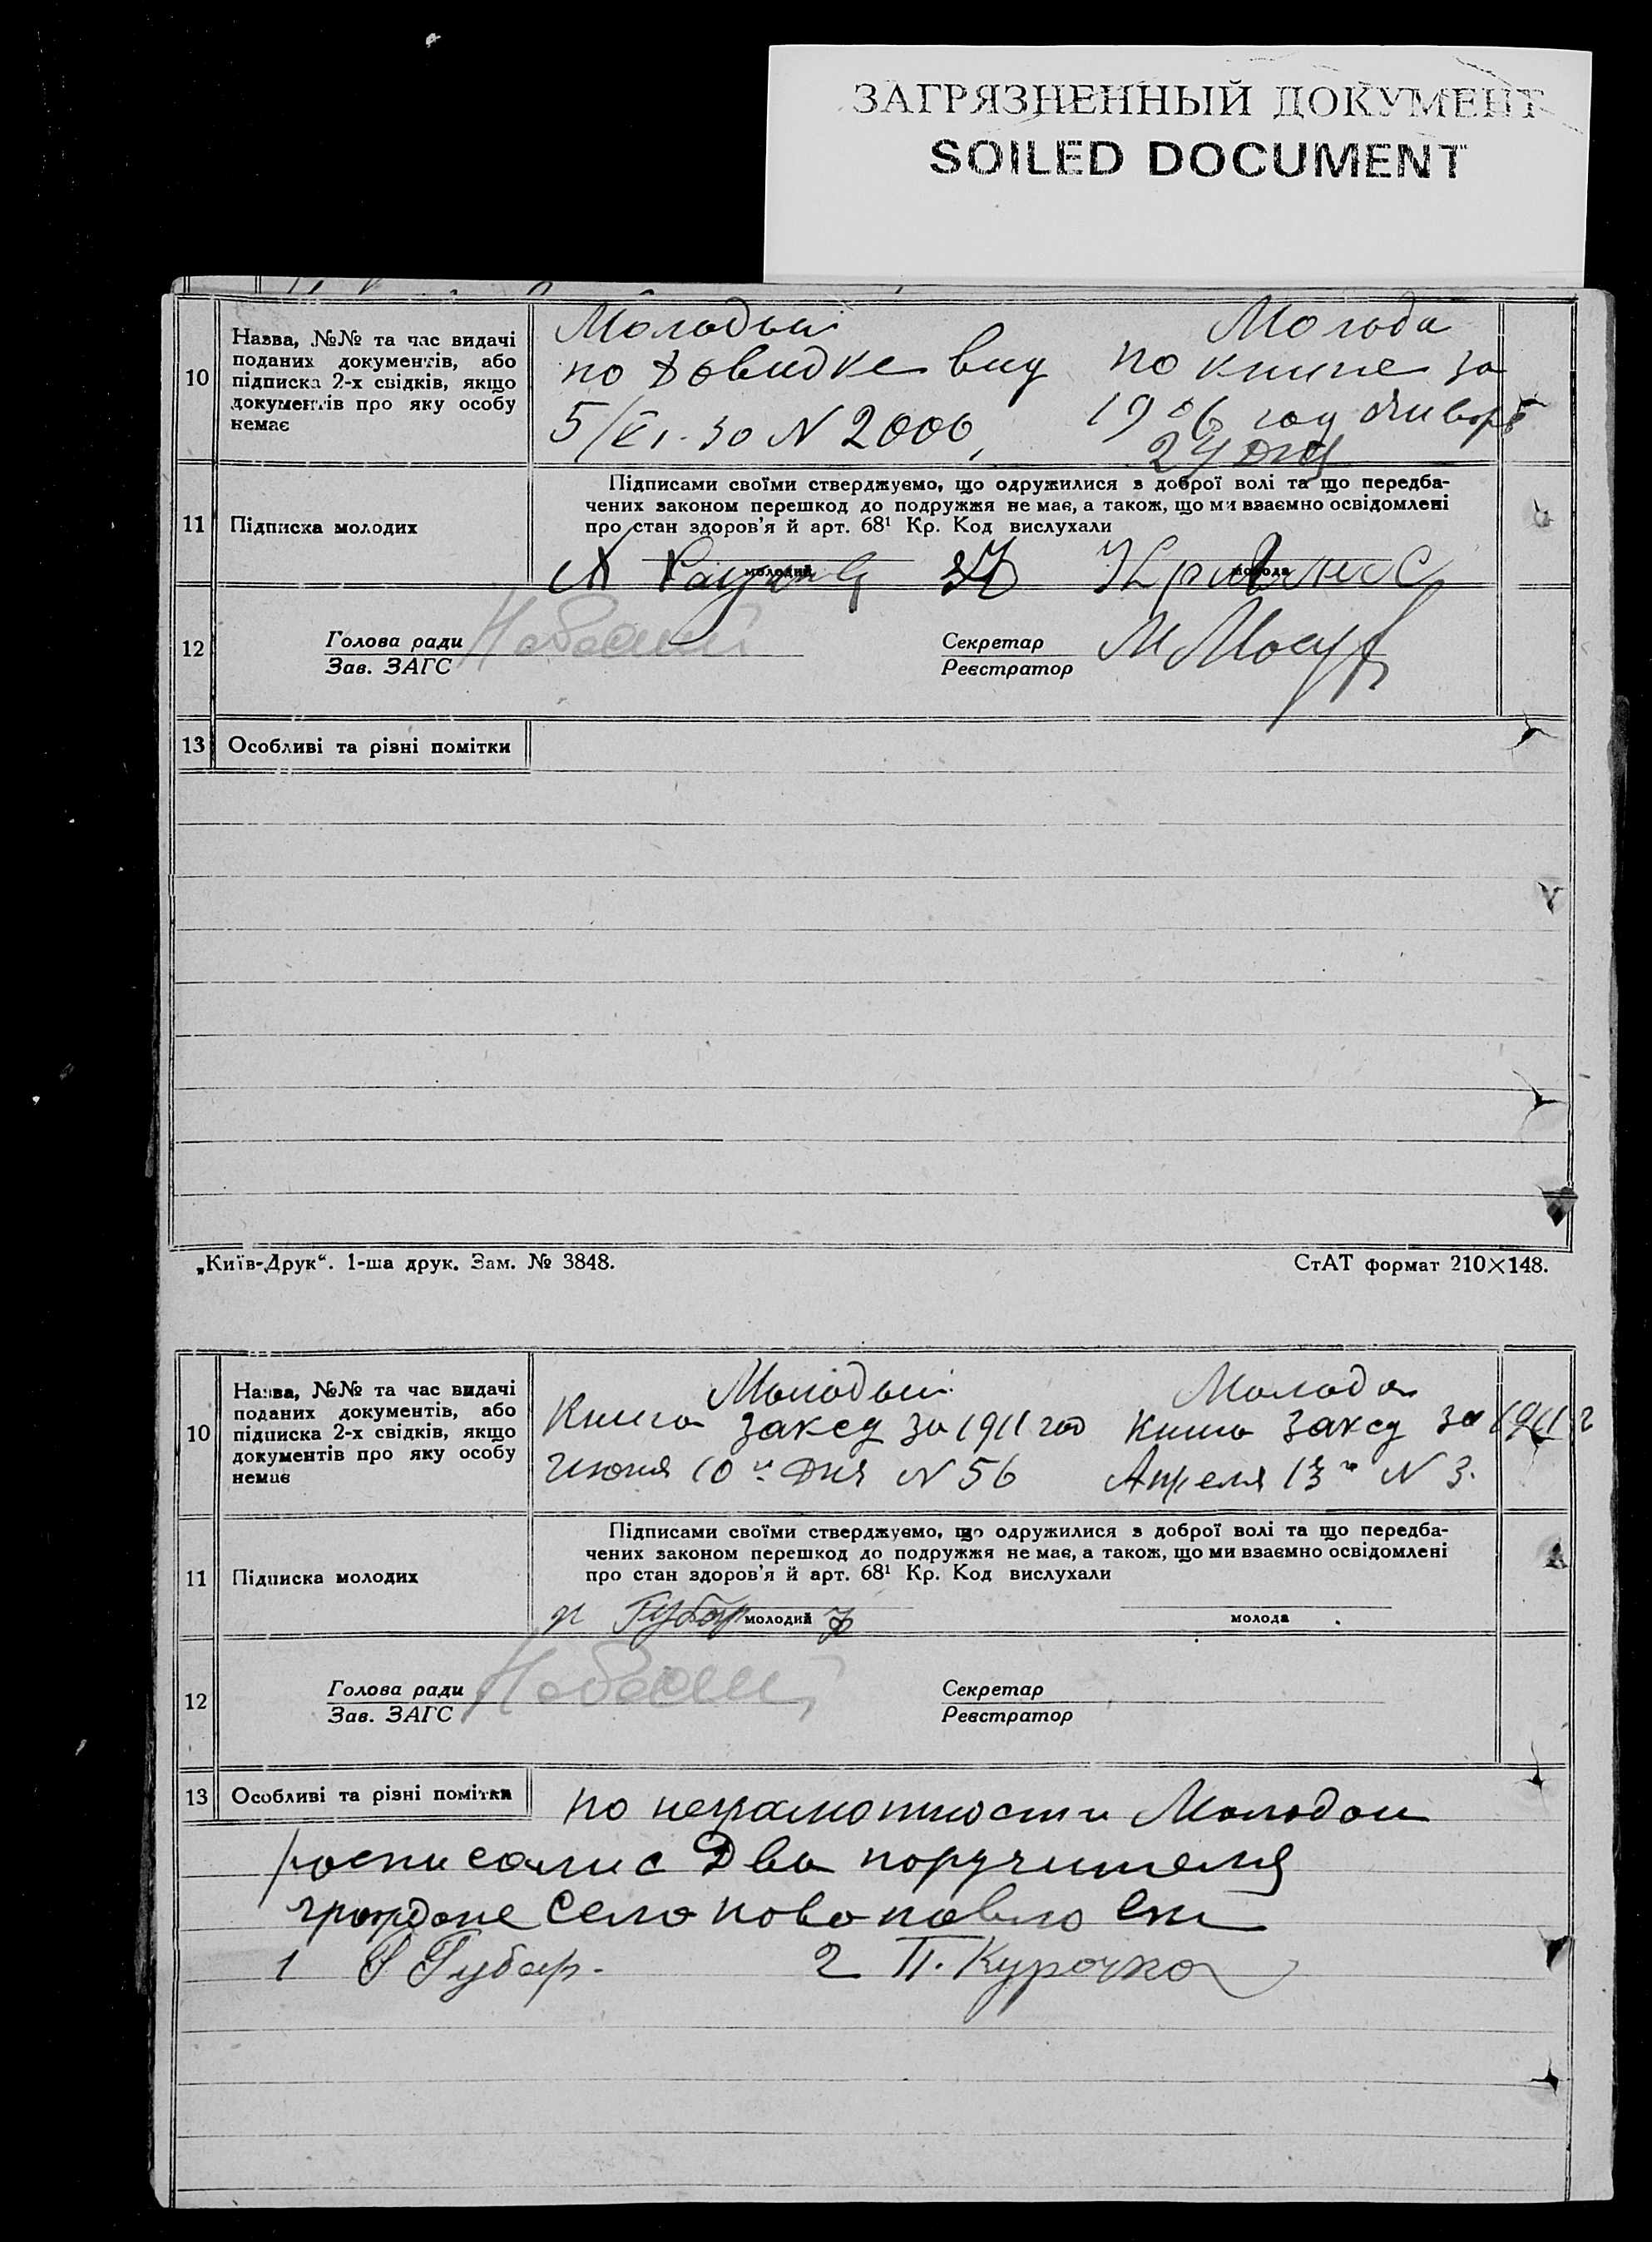 ЗАГРЯЗНЕННЫЙ ДОКУМЕНТ
SOILED DOCUMENT
10
Назва, №№ та час видачі
поданих документів, або
підписка 2-х свідків, якщо
документів про яку особу
немає
Молодый Молода
по Довидке выд по книге за
5/XI-30 N 2000, 1906 год
24 дня
11
Підписка молодих
Підписами своїми стверджуємо, що одружилися з доброї волі та що передба-
чених законом перешкод до подружжя не має, а також, що ми взаємно освідомлені
про стан здоров'я й арт. 68¹ Кр. Код вислухали
молодий молода
12
Голова ради
Зав. ЗАГС
Секретар
Реєстратор
13
Особливі та різні помітки
„Київ-Друк“. 1-ша друк. Зам. № 3848. СтАТ формат 210×148.
10
Назва, №№ та час видачі
поданих документів, або
підписка 2-х свідків, якщо
документів про яку особу
немає
Молодый Молода
Книга загсу за 1911 год Книга загсу за 1911 г
Июня 10го дня N 56 Апреля 13го N 3.
11
Підписка молодих
Підписами своїми стверджуємо, що одружилися з доброї волі та що передба-
чених законом перешкод до подружжя не має, а також, що ми взаємно освідомлені
про стан здоров'я й арт. 68¹ Кр. Код вислухали
Губар
молодий молода
12
Голова ради
Зав. ЗАГС
Секретар
Реєстратор
13
Особливі та різні помітки
по неграмотности Молодои
росписалис Два поручителя
граждане село новопавловки
1 Губар. 2 П. Курочка